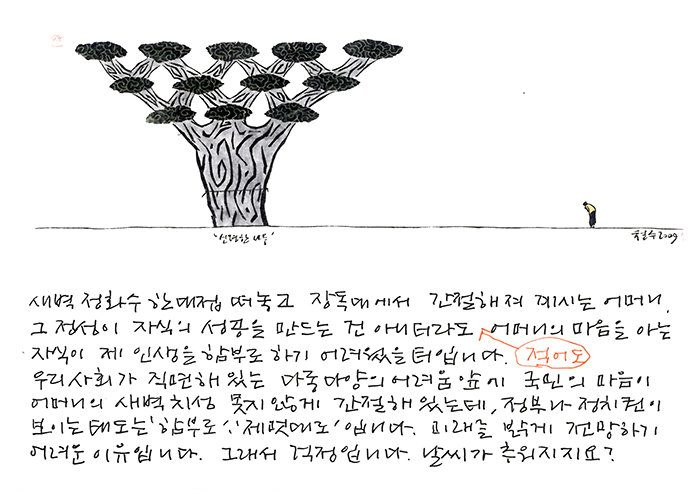 '신령한 나무'
철수 2009
새벽 정화수 한대접 떠놓고 장독대에서 간절해져 계시는 어머니.
그 정성이 자식의 성공을 만드는 건 아니더라도 어머니의 마음을 아는
자식이 제 인생을 함부로 하기 어려웠을 터입니다. 적어도
우리사회가 직면해 있는 다종다양의 어려움 앞에 국민의 마음이
어머니의 새벽치성 못지않게 간절해 있는데, 정부나 정치권이
보이는 태도는 '함부로', '제멋대로' 입니다. 미래를 밝게 전망하기
어려운 이유입니다. 그래서 걱정입니다. 날씨가 추워지지요?